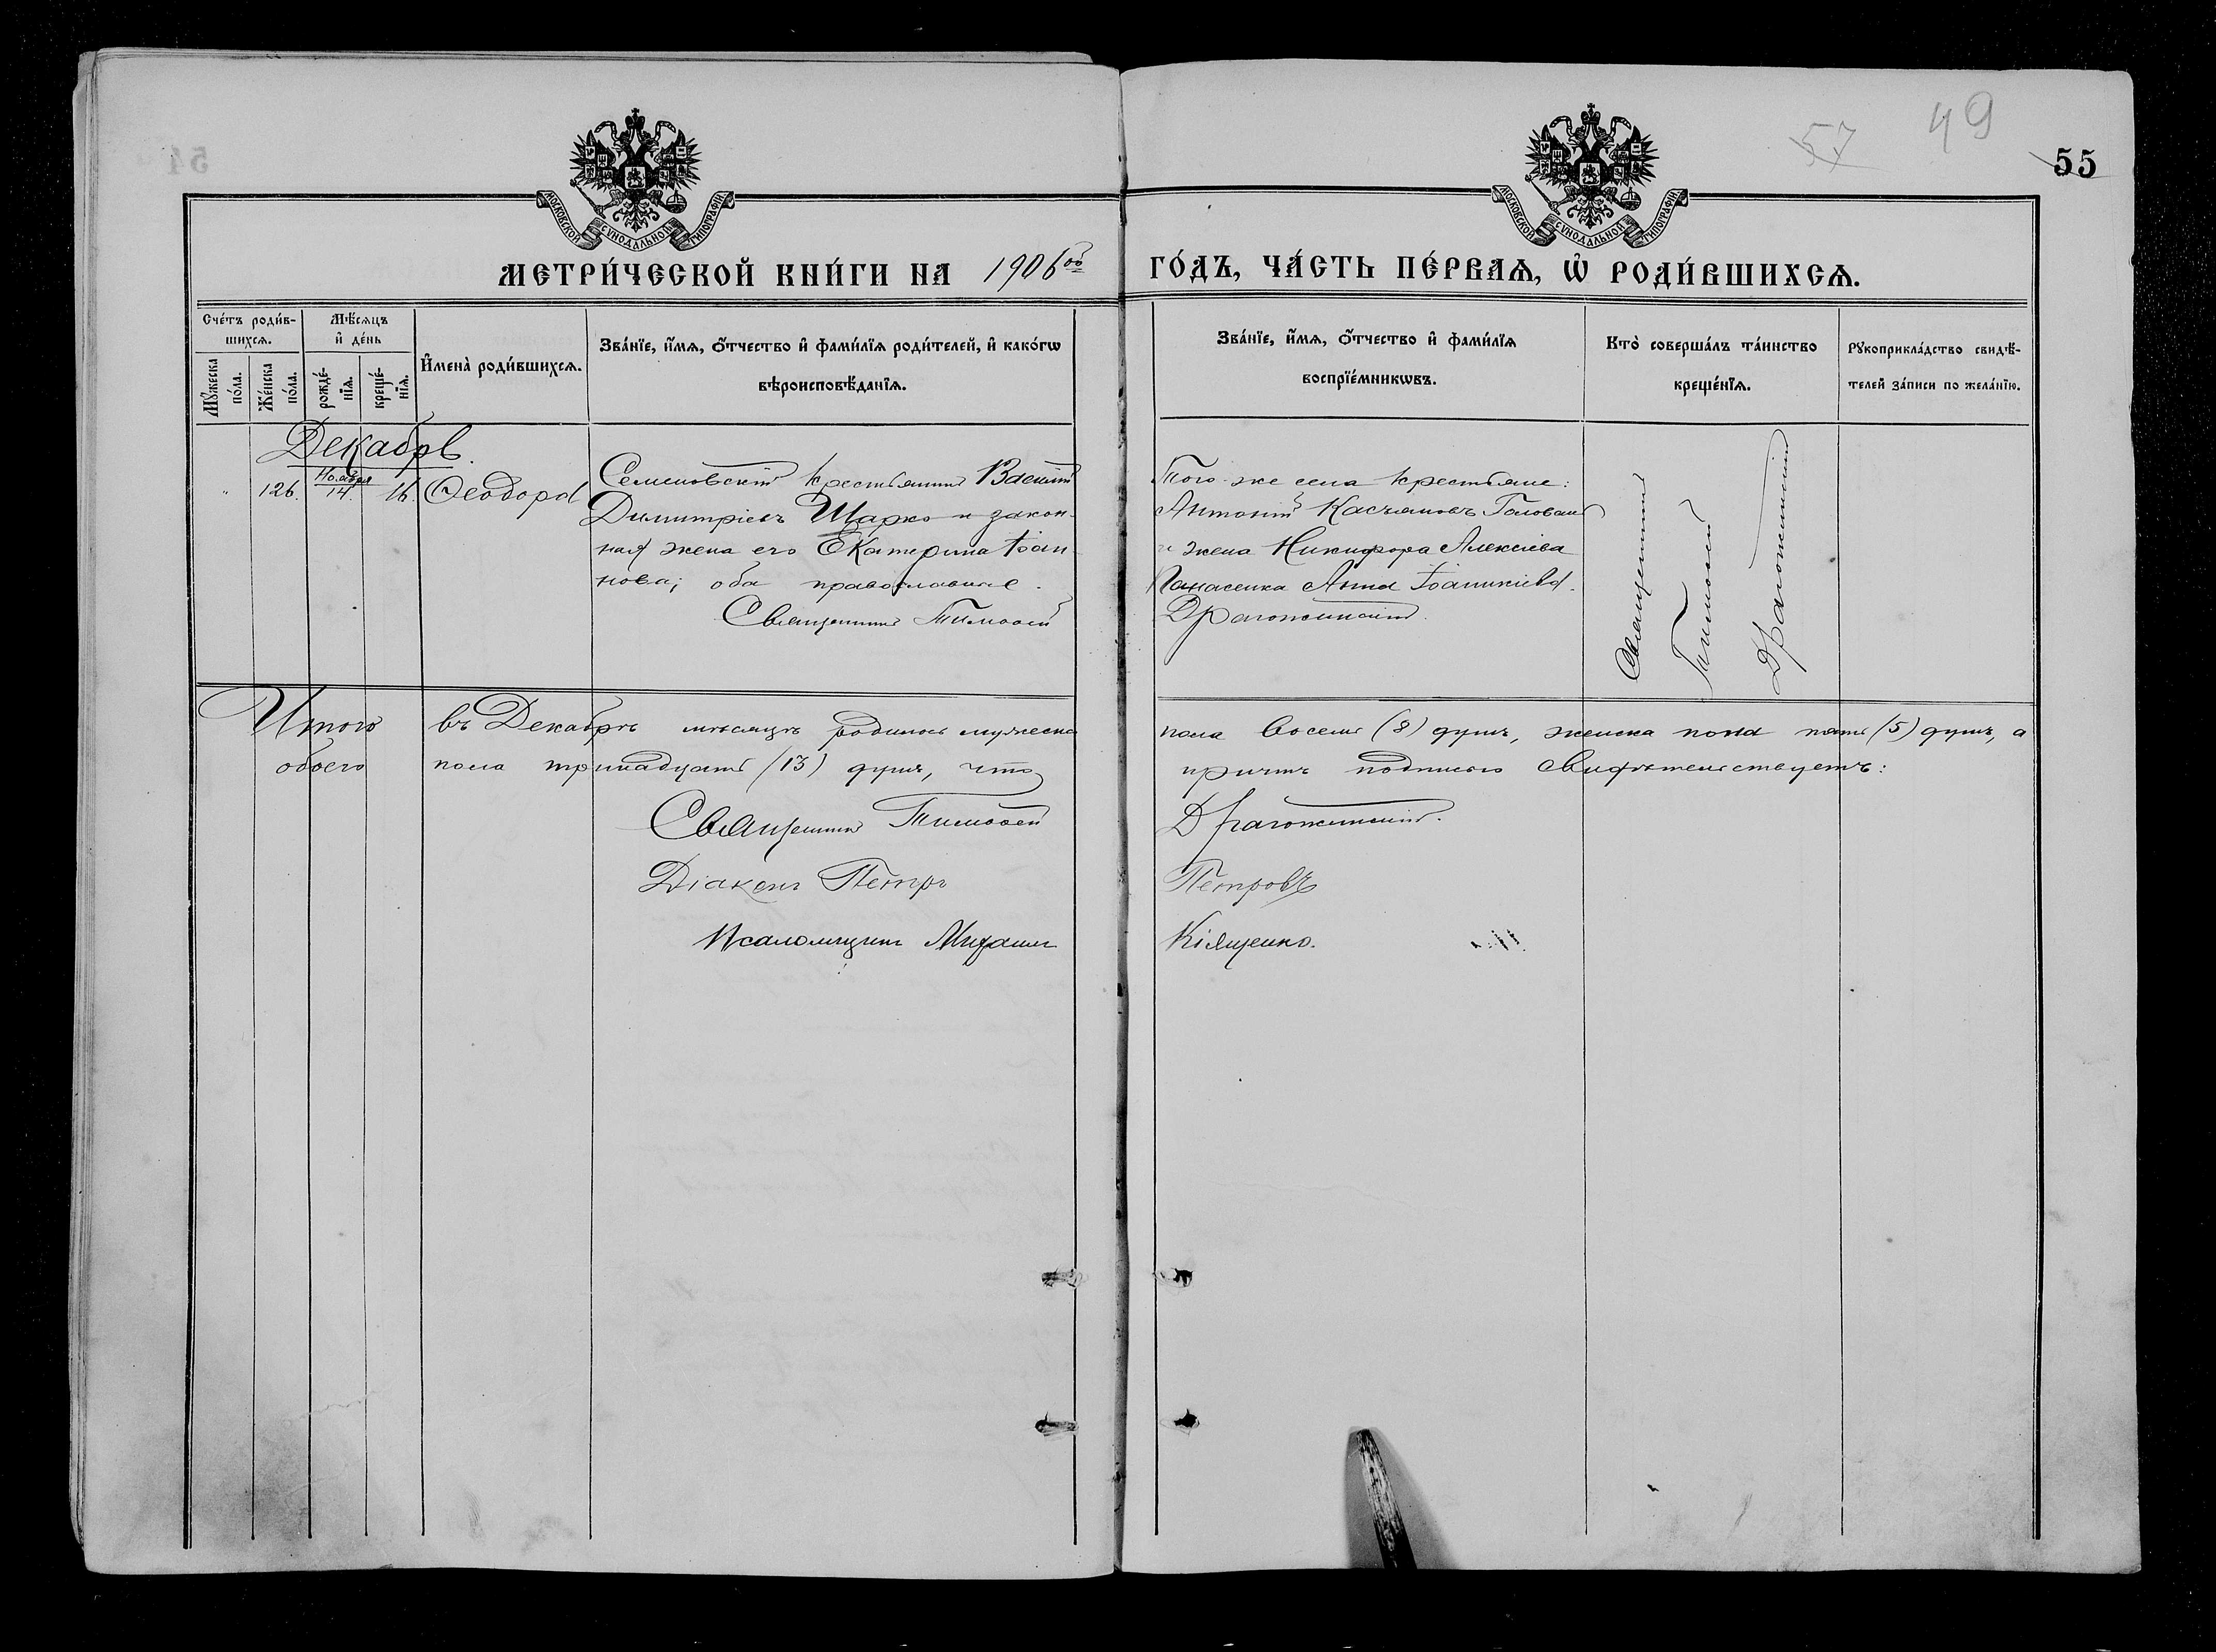 54
57
49
55
МОСКОВСКОЙ СѴНОДАЛЬНОЙ ТИПОГРАФІИ
МОСКОВСКОЙ СѴНОДАЛЬНОЙ ТИПОГРАФІИ
МЕТРИ́ЧЕСКОЙ КНИ́ГИ НА 1906ой ГО́ДЪ, ЧА́СТЬ ПЕ́РВАѦ, Ѡ҆ РОДИ́ВШИХСѦ.
Сче́тъ роди́в-
шихсѧ.
Мꙋжеска по́ла.
Же́нска по́ла.
Мѣ́сѧцъ
и҆ де́нь
рожде́-
нїѧ.
креще́-
нїѧ.
И҆мена̀ роди́вшихсѧ.
Зва́нїе, и҆́мѧ, ѻ҆́тчество и҆ фами́лїѧ роди́телей, и҆ како́гѡ
вѣроисповѣ́данїѧ.
Зва́нїе, и҆́мѧ, ѻ҆́тчество и҆ фами́лїѧ
воспрїе́мникѡвъ.
Кто̀ соверша́лъ та́инство
креще́нїѧ.
Рꙋкоприкла́дство свидѣ́-
телей за́писи по жела́нїю.
Декабрь.
" 126. Ноября 14. 16. Ѳеодора
Семеновскій крестьянинъ Василій
Димитріевъ Шарко и закон-
ная жена его Екатерина Іоан-
нова; оба православные.
Священникъ Тимоѳей
Того-же села крестьяне:
Антоній Касьяновъ Голованъ
и жена Никифора Алексіева
Панасенка Анна Іоанникіева.
Драгожинскій.
Священникъ
Тимоѳей
Драгожинскій
Итого въ Декабрѣ мѣсяцѣ родилось мужеска пола восемь (8) душъ, женска пола пять (5) душъ, а
обоего пола тринадцать (13) душъ, что причтъ подписью свидѣтельствуетъ:
Священникъ Тимоѳей Драгожинскій.
Діаконъ Петръ Петровъ
Псаломщикъ Михаилъ Кіященко.